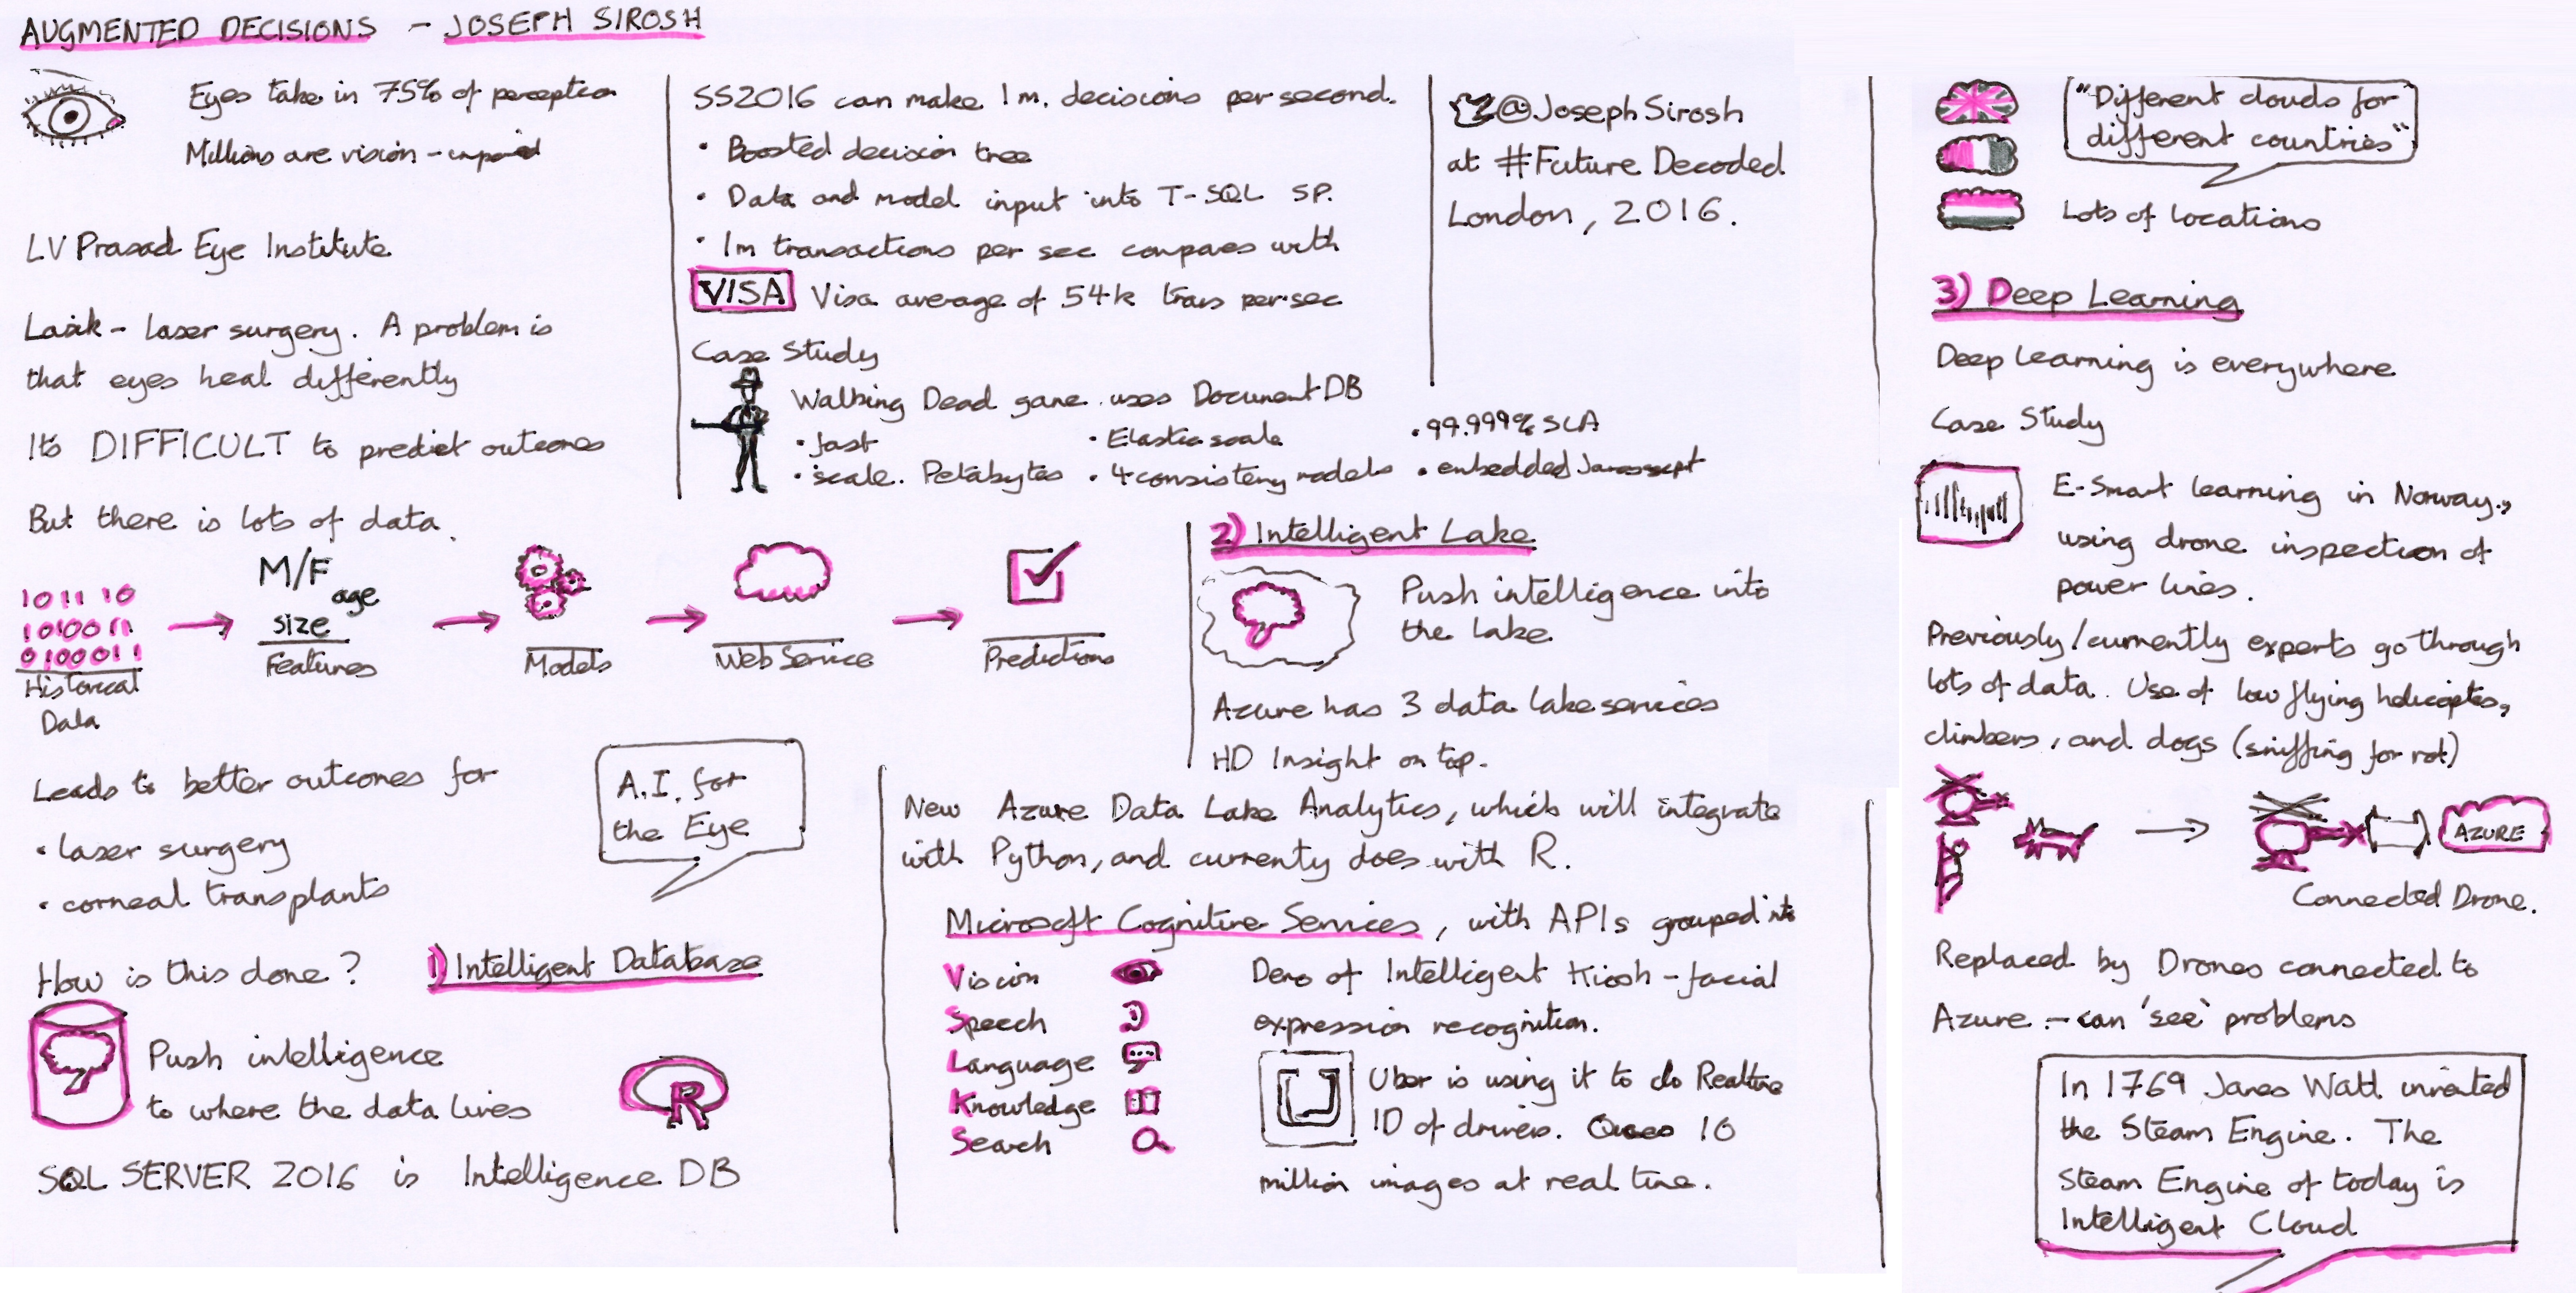 AUGMENTED DECISIONS - JOSEPH SIROSH
Eyes take in 75% of perception
Millions are vision-impaired
LV Prasad Eye Institute
Lasik - laser surgery. A problem is
that eyes heal differently
Its DIFFICULT to predict outcomes
But there is lots of data.
101110
1010011
0100011
Historical
Data
M/F
age
size
Features
Models
Web Service
Predictions
Leads to better outcomes for
• laser surgery
• corneal transplants
A.I. for
the Eye
How is this done?
1) Intelligent Database
Push intelligence
to where the data lives
R
SQL SERVER 2016 is Intelligence DB
SS2016 can make 1m. decisions per second.
• Boosted decision tree
• Data and model input into T-SQL SP.
• 1m transactions per sec compares with
VISA Visa average of 54k trans per sec
Case Study
Walking Dead game uses Document DB
• fast • Elastic scale • 99.999% SLA
• scale.. Petabytes • 4 consistency models • embedded Javascript
@JosephSirosh
at #Future Decoded
London, 2016.
2) Intelligent Lake
Push intelligence into
the Lake
Azure has 3 data lake services
HD Insight on top.
New Azure Data Lake Analytics, which will integrate
with Python, and currenty does with R.
Microsoft Cognitive Services, with APIs grouped into
Vision
Speech
Language
Knowledge
Search
Demo of Intelligent Kiosk - facial
expression recognition.
Uber is using it to do Realtime
ID of drivers. 10
million images at real time.
"Different clouds for
different countries"
Lots of locations
3) Deep Learning
Deep Learning is everywhere
Case Study
E-Smart learning in Norway,
using drone inspection of
power lines.
Previously/currently experts go through
lots of data. Use of low flying helicopters,
climbers, and dogs (sniffing for rot)
AZURE
Connected Drone.
Replaced by Drones connected to
Azure - can 'see' problems
In 1769 James Watt invented
the Steam Engine. The
Steam Engine of today is
Intelligent Cloud